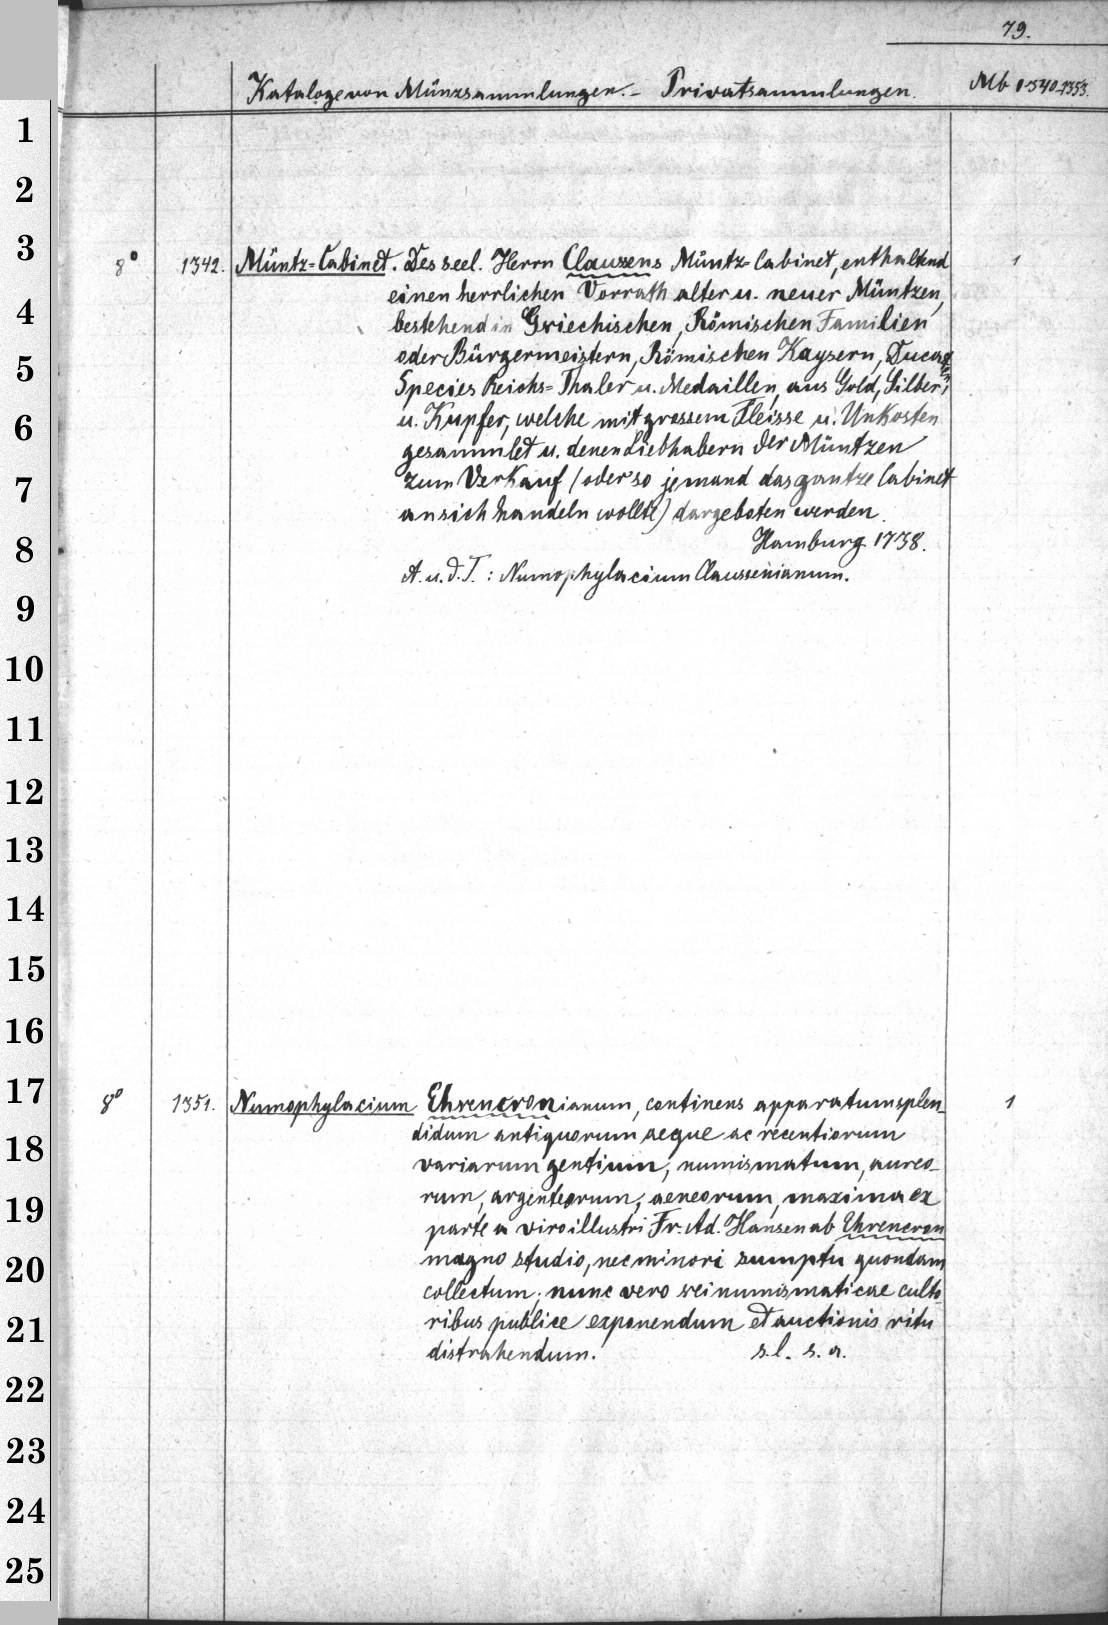 79.
Kataloge von Münzsammlungen. - Privatsammlungen. Mb 1340-1353.
1
2
3
8° 1342. Müntz=Cabinet. Des seel. Herrn Clausens Müntz=Cabinet, enthaltend 1
einen herrlichen Vorrath alter u. neuer Müntzen,
4
bestehend in Griechischen, Römischen Familien
oder Bürgermeistern, Römischen Kaysern, Ducaten
5
Species Reichs=Thaler u. Medaillen, aus Gold, Silber,
u. Kupfer, welche mit grossem Fleisse u. Unkosten
6
gesammlet u. denen Liebhabern der Müntzen
zum Verkauf (oder so jemand das gantze Cabinet
7
an sich handeln wollte) dargeboten werden.
Hamburg 1738.
8
A. u. d. T. : Numophylacium Claussenianum.
9
10
11
12
13
14
15
16
17
8° 1351. Numophylacium Ehrencronianum, continens apparatum splen- 1
didum antiquorum aeque ac recentiorum
18
variarum gentium, numismatum, aureo-
rum, argenteorum, aeneorum, maxima ex
19
parte a viro illustri Fr. Ad. Hansen ab Ehrencron
magno studio, nec minori sumptu quondam
20
collectum; nunc vero rei numismaticae culto-
ribus publice exponendum et auctionis ritu
21
distrahendum. s. l. s. a.
22
23
24
25